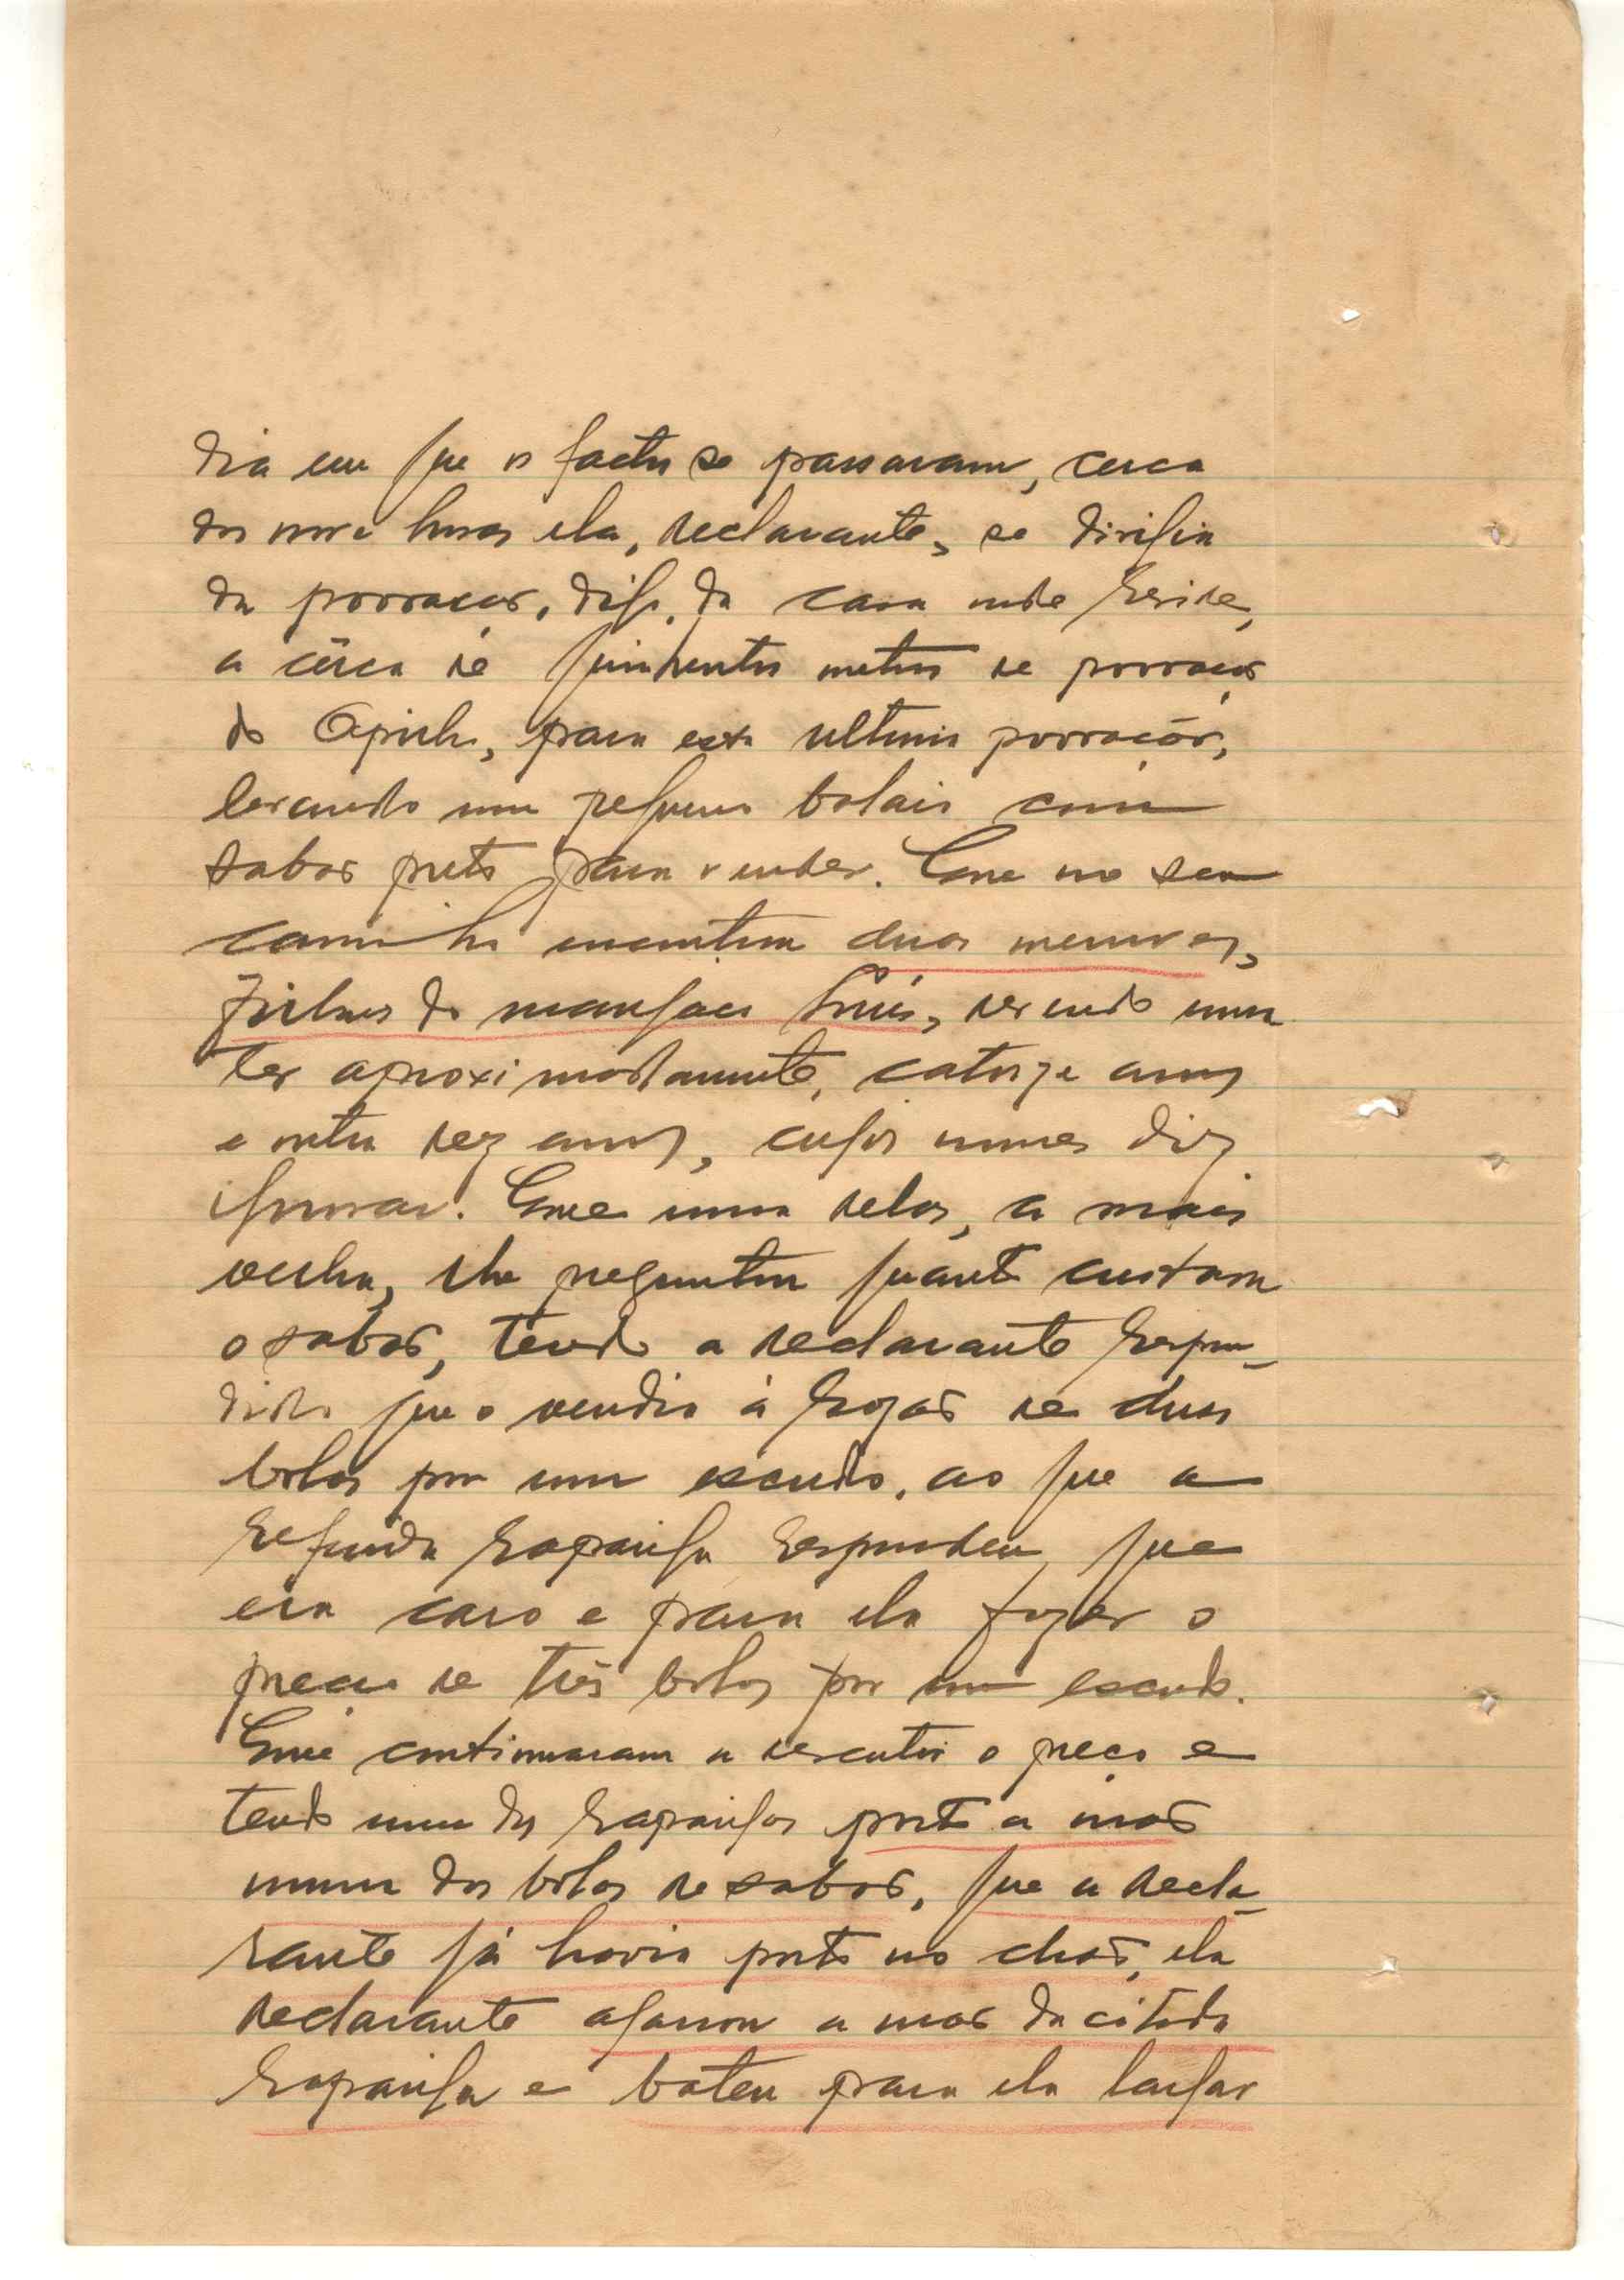 dia em que os factos se passaram, cerca
das nove horas ela, declarante, se dirigia
da povoação, digo, da casa onde reside,
a cêrca de quinhentos metros de povoação
de para esta ultima povoação,
levando um pequeno balaio com
sabão preto para vender. Que no seu
caminho encontrou duas meninas,
filhas do mancanha Luís, devendo uma
ter aproximadamente, catorze anos
e outra dez anos, cujos nomes diz
ignorar. Que uma delas, a mais
velha, lhe preguntou quanto custava
o sabão, tendo a declarante respon-
dido que o vendia à razão de duas
bolas por um escudo, ao que a
referida rapariga respondeu que
era caro e para ela fazer o
preço de três bolas por um escudo.
Que continuaram a descutir o preço e
tendo uma das raparigas posto a mão
numa das bolas de sabão, que a decla-
rante já havia posto no chão, ela
declarante agarrou a mão da citada
rapariga e bateu para ela largar